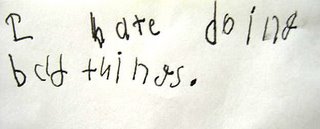 I hate doing
bad things.